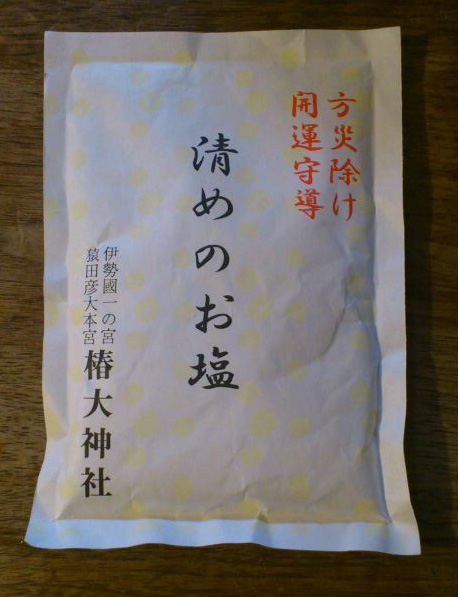 方災除け
開運守導
清めのお塩
伊勢國一の宮
猿田彦大本宮
椿大神社